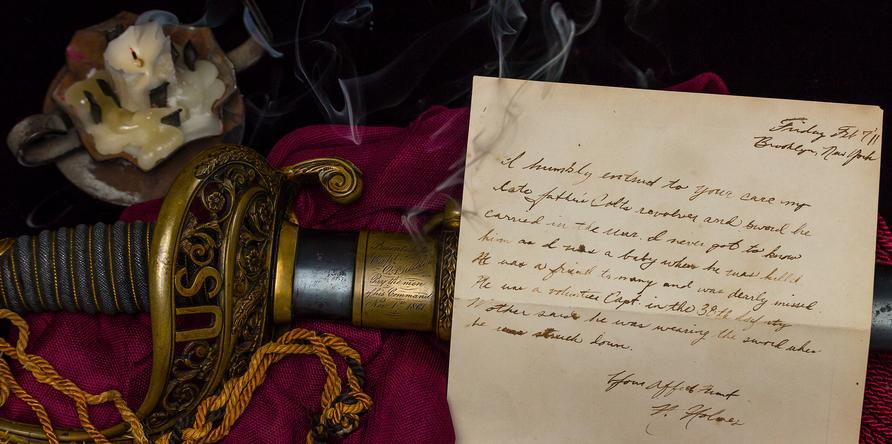 US
Pay the men
this Command
1861
Friday Feb 7 '11
Brooklyn, New York
I humbly entrust to your care my
late father's Colts revolver and sword he
carried in the war. I never got to know
him as I was a baby when he was killed
He was a friend to many and was deerly missed.
He was a volunteer Capt. in the 38th
Mother said he was wearing the sword when
he was struck down.
Your affect
N. Holmes